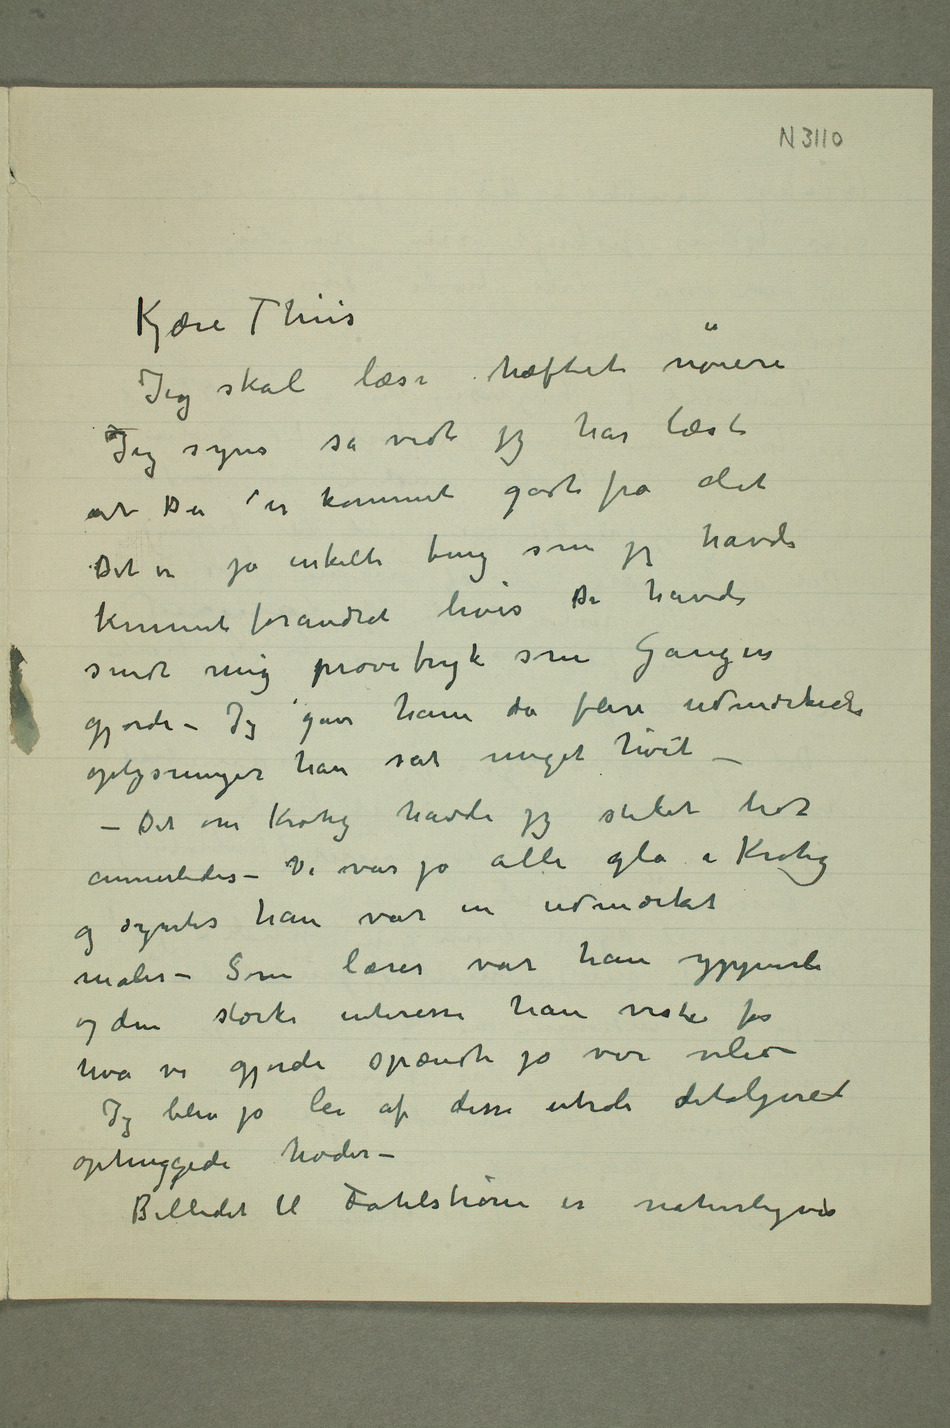 N 3110
Kjære Thiis
Jeg skal læse hæftet nøiere
Jeg synes så vidt jeg har læst
at De er kommet godt fra det
Det er jo enkelte ting som jeg havde
kunnet forandret hvis De havde
sendt mig prøvetryk som Gauguin
gjorde – Jeg gav ham da flere udmærkede
oplysninger han sat meget hvit –
– Det om Krohg havde jeg stilet lidt
annerledes – Vi var jo alle gla i Krohg
og syntes han var en udmærket
maler – Som lærer var han ypperlig
og den stærke interesse han viste for
hva vi gjorde spændte jo vor vilie –
Jeg blev jo lei af disse utrole detaljeret
ophuggede hoder –
Billedet til Dahlstrøm er naturligvis